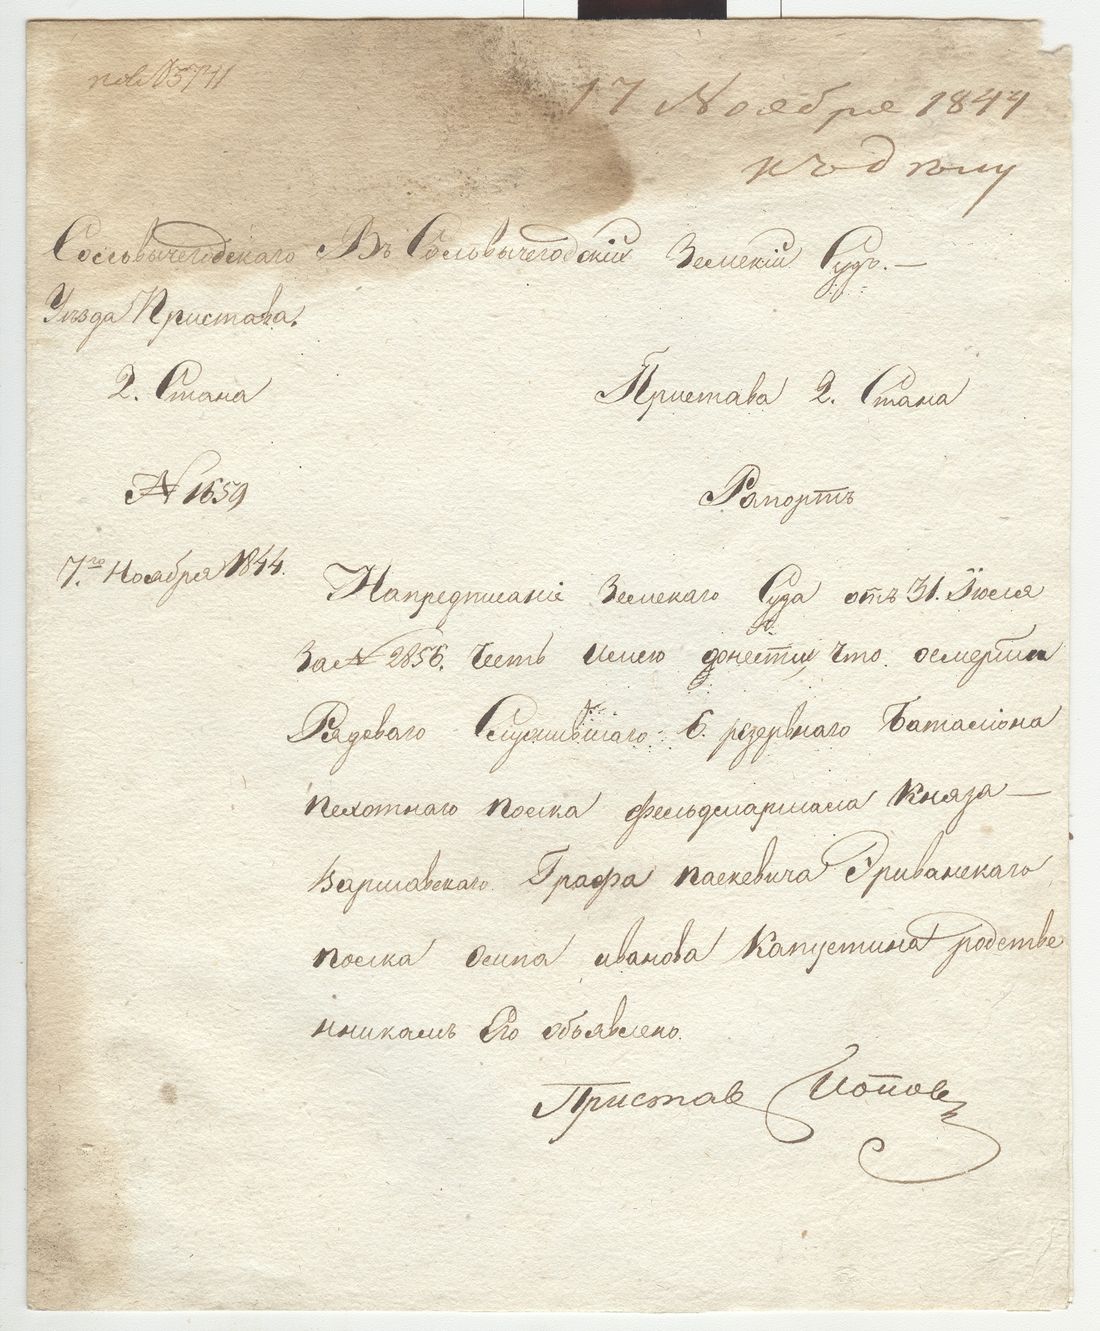 17 Ноября 1844
къ дѣлу
Сольвычегодскаго
Уѣзда Пристава.
2. Стана
№ 1659
7.го Ноября 1844.
Въ Сольвычегодскій Земскій Судъ.—
Пристава 2. Стана
Рапортъ
Напредписаніе Земскаго Суда отъ 31. Іюля
За № 2856. Честь имею донести, что осмерти
Рядоваго Служившаго 6. резервнаго Баталіона
пехотнаго полка фельдмаршала Князя—
Варшавскаго Графа паскевича Эриванскаго
полка Осипа иванова Капустина родстве
нникамъ Его объявлено.
Пристав Попов